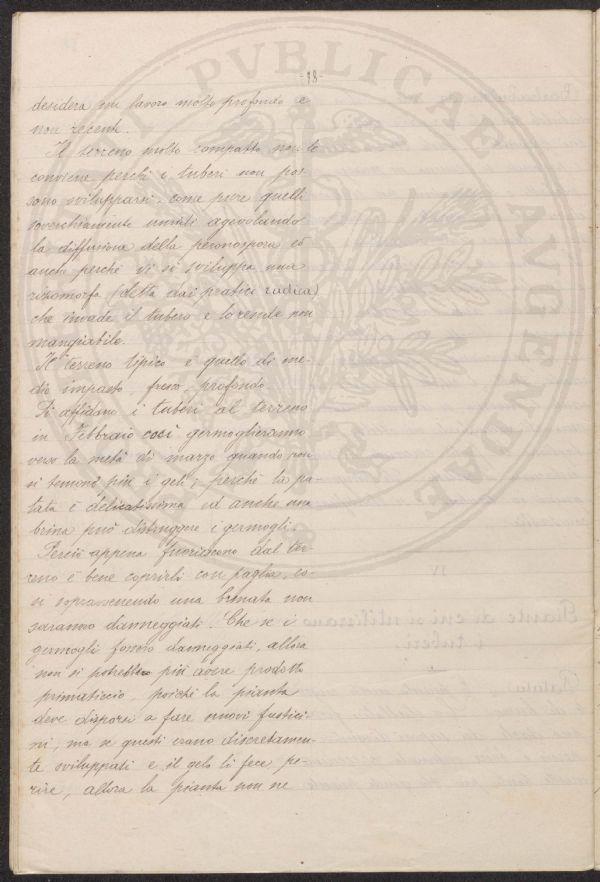 -98-
desidera un lavoro molto profondo e
non recente.
Il terreno molto compatto non le
conviene perché i tuberi non pos-
sono svilupparsi, come pure quelli
soverchiamente umidi agevolando
la diffusione della peronospora ed
anche perché vi si sviluppa una
rizomorfa (detta dai pratici radica)
che invade il tubero e lo rende non
mangiabile.
Il terreno tipico è quello di me-
dio impasto, fresco, profondo.
Si affidino i tuberi al terreno
in Febbraio così germoglieranno
verso la metà di marzo quando non
si temono più i geli; perché la pa-
tata è delicatissima ed anche una
brina può distruggere i germogli.
Perciò appena fuoriescono dal ter-
reno è bene coprirli con paglia, co-
si sopravvenendo una brinata non
saranno danneggiati. Che se i
germogli fossero danneggiati, allora
non si potrebbero più avere prodotto
primaticcio, poiché la pianta
deve disporsi a fare nuovi fustici-
ni, ma se questi erano discretamen-
te sviluppati e il gelo li fece pe-
rire, allora la pianta non ne
PVBLICAE AVGENDAE